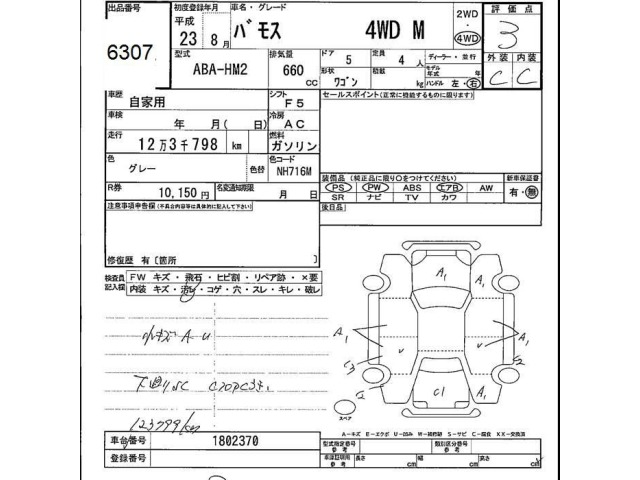 出品番号 初度登録年月 車名・グレード 2WD 評価点
6307 平成 23年 8月 バモス 4WD M 4WD 3
型式 排気量 ドア 定員 ディーラー・並行 外装 内装
ABA-HM2 660 CC 5 4人 モデル年式 年 C C
形状 ワゴン 積載 kg ハンドル 左・右
車歴 自家用 シフト F5 セールスポイント(正常に機能するものに限ります)
車検 年 月( 日) 冷房 AC
走行 12万3千798 km 燃料 ガソリン
色 グレー 色替 色コード NH716M
装備品 (純正品に限り○をつけてください) 新車保証書
PS PW ABS エアB AW 有・無
SR ナビ TV カワ
R券 10,150円 名変通知期限 月 日
後日品
注意事項申告欄(不具合内容等は具体的に記入して下さい)
修復歴 有〔箇所 〕
検査員記入欄 FW キズ・飛石・ヒビ割・リペア跡・×要
内装 キズ・汚レ・コゲ・穴・スレ・キレ・破レ
A1
A1 A1
小キズ A-U
C3 U U S2
下廻りSC
C2 C1 A1
123799km
スペア
A-キズ E-エクボ U-凹み W-補修跡 S-サビ C-腐食 XX-交換済
車台番号 1802370 型式指定番号 参考 類別区分番号 参考
登録番号 車庫証明用 参考 長さ cm 幅 cm 高さ cm